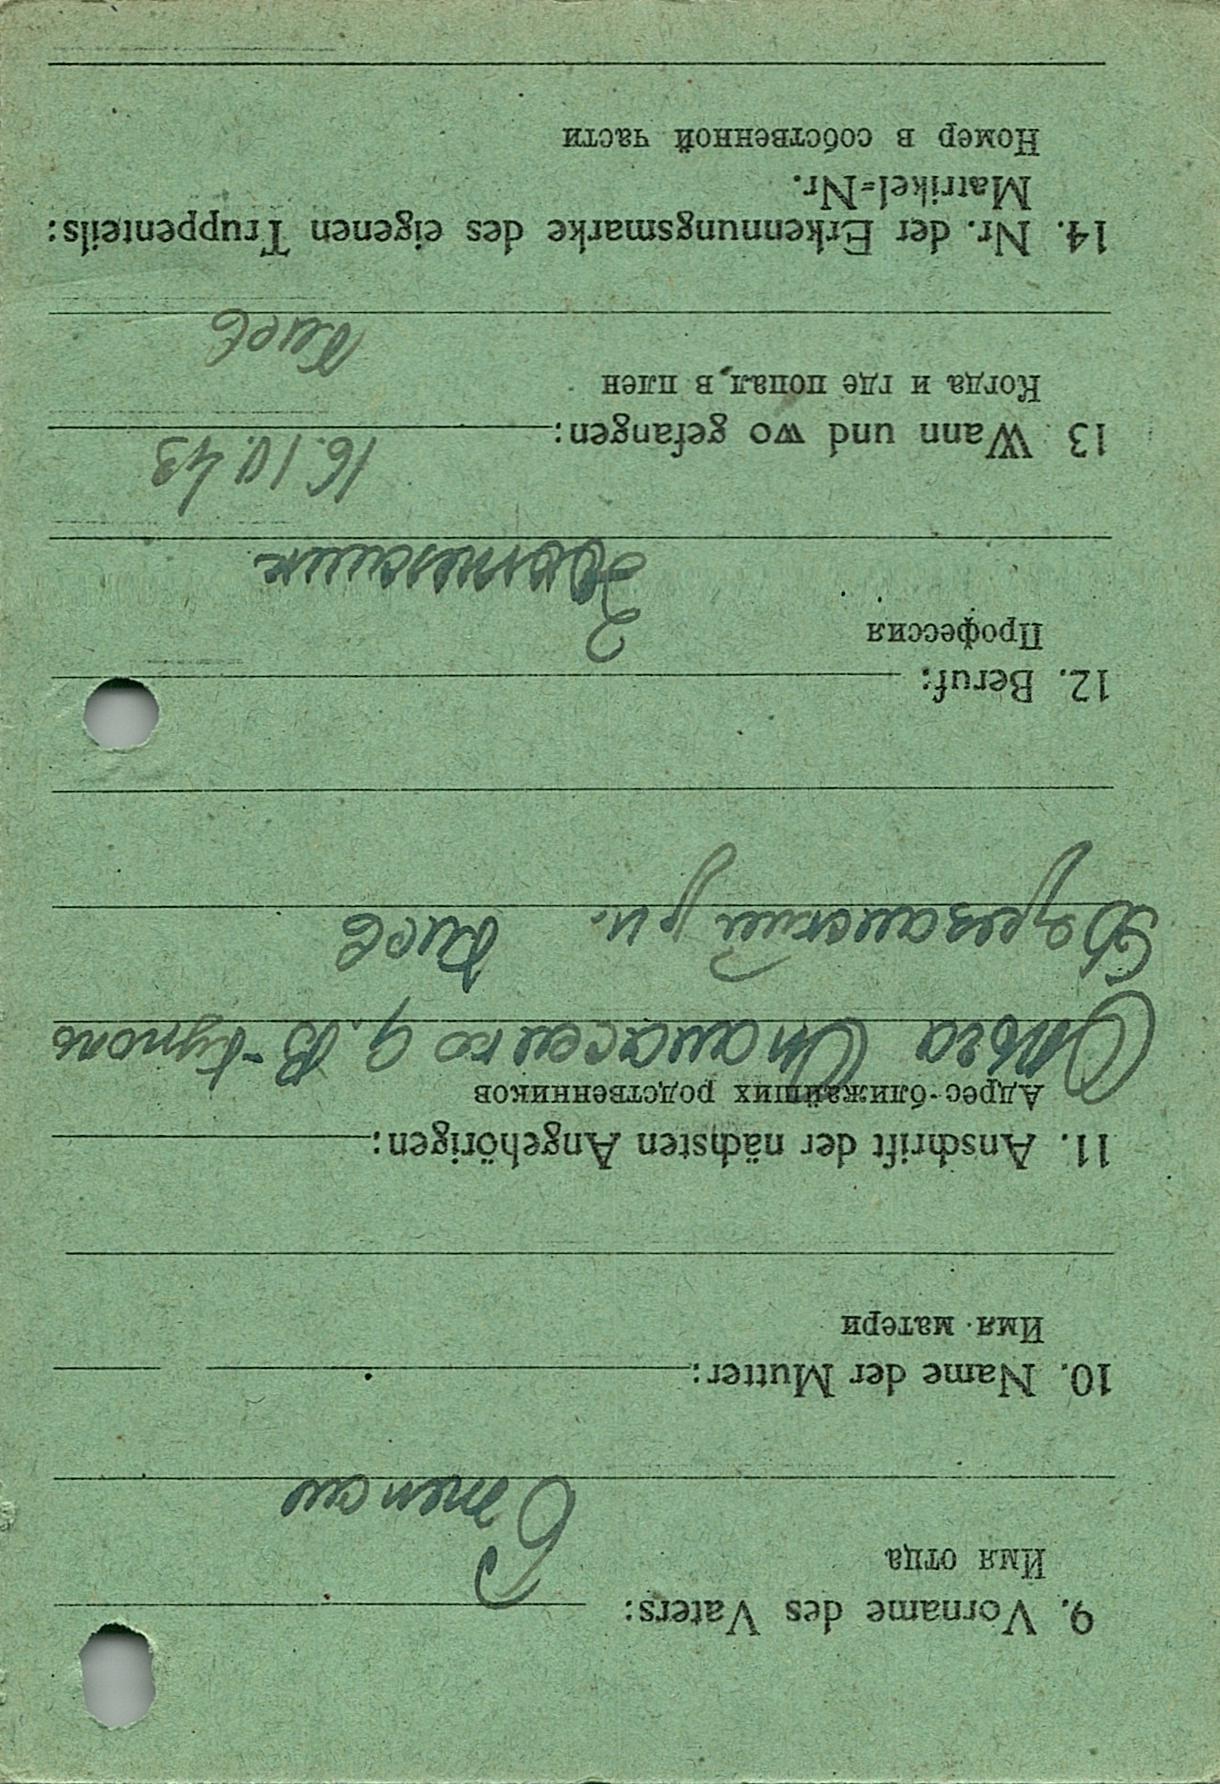 9. Vorname des Vaters:
Имя отца
Степан
10. Name der Mutter:
Имя матери
11. Anschrift der nächsten Angehörigen:
Адрес ближайших родственников
Ольга
Киев
12. Beruf:
Профессия
13 Wann und wo gefangen:
16.10.43
Когда и где попал в плен
Киев
14. Nr. der Erkennungsmarke des eigenen Truppenteils:
Matrikel=Nr.
Номер в собственной части